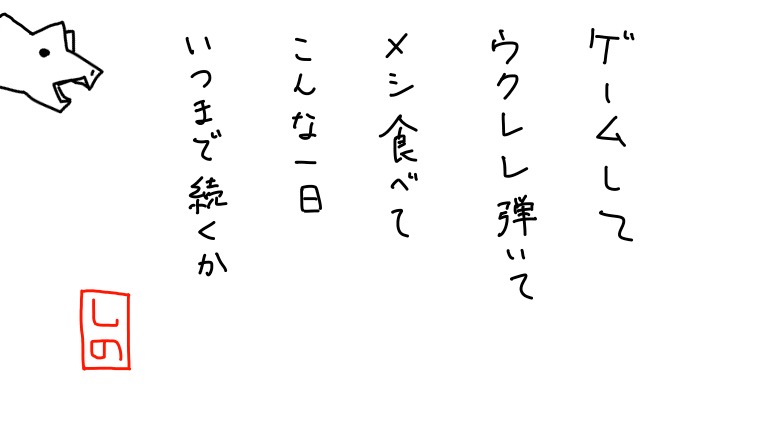 ゲームして
ウクレレ弾いて
メシ食べて
こんな一日
いつまで続くか
しの